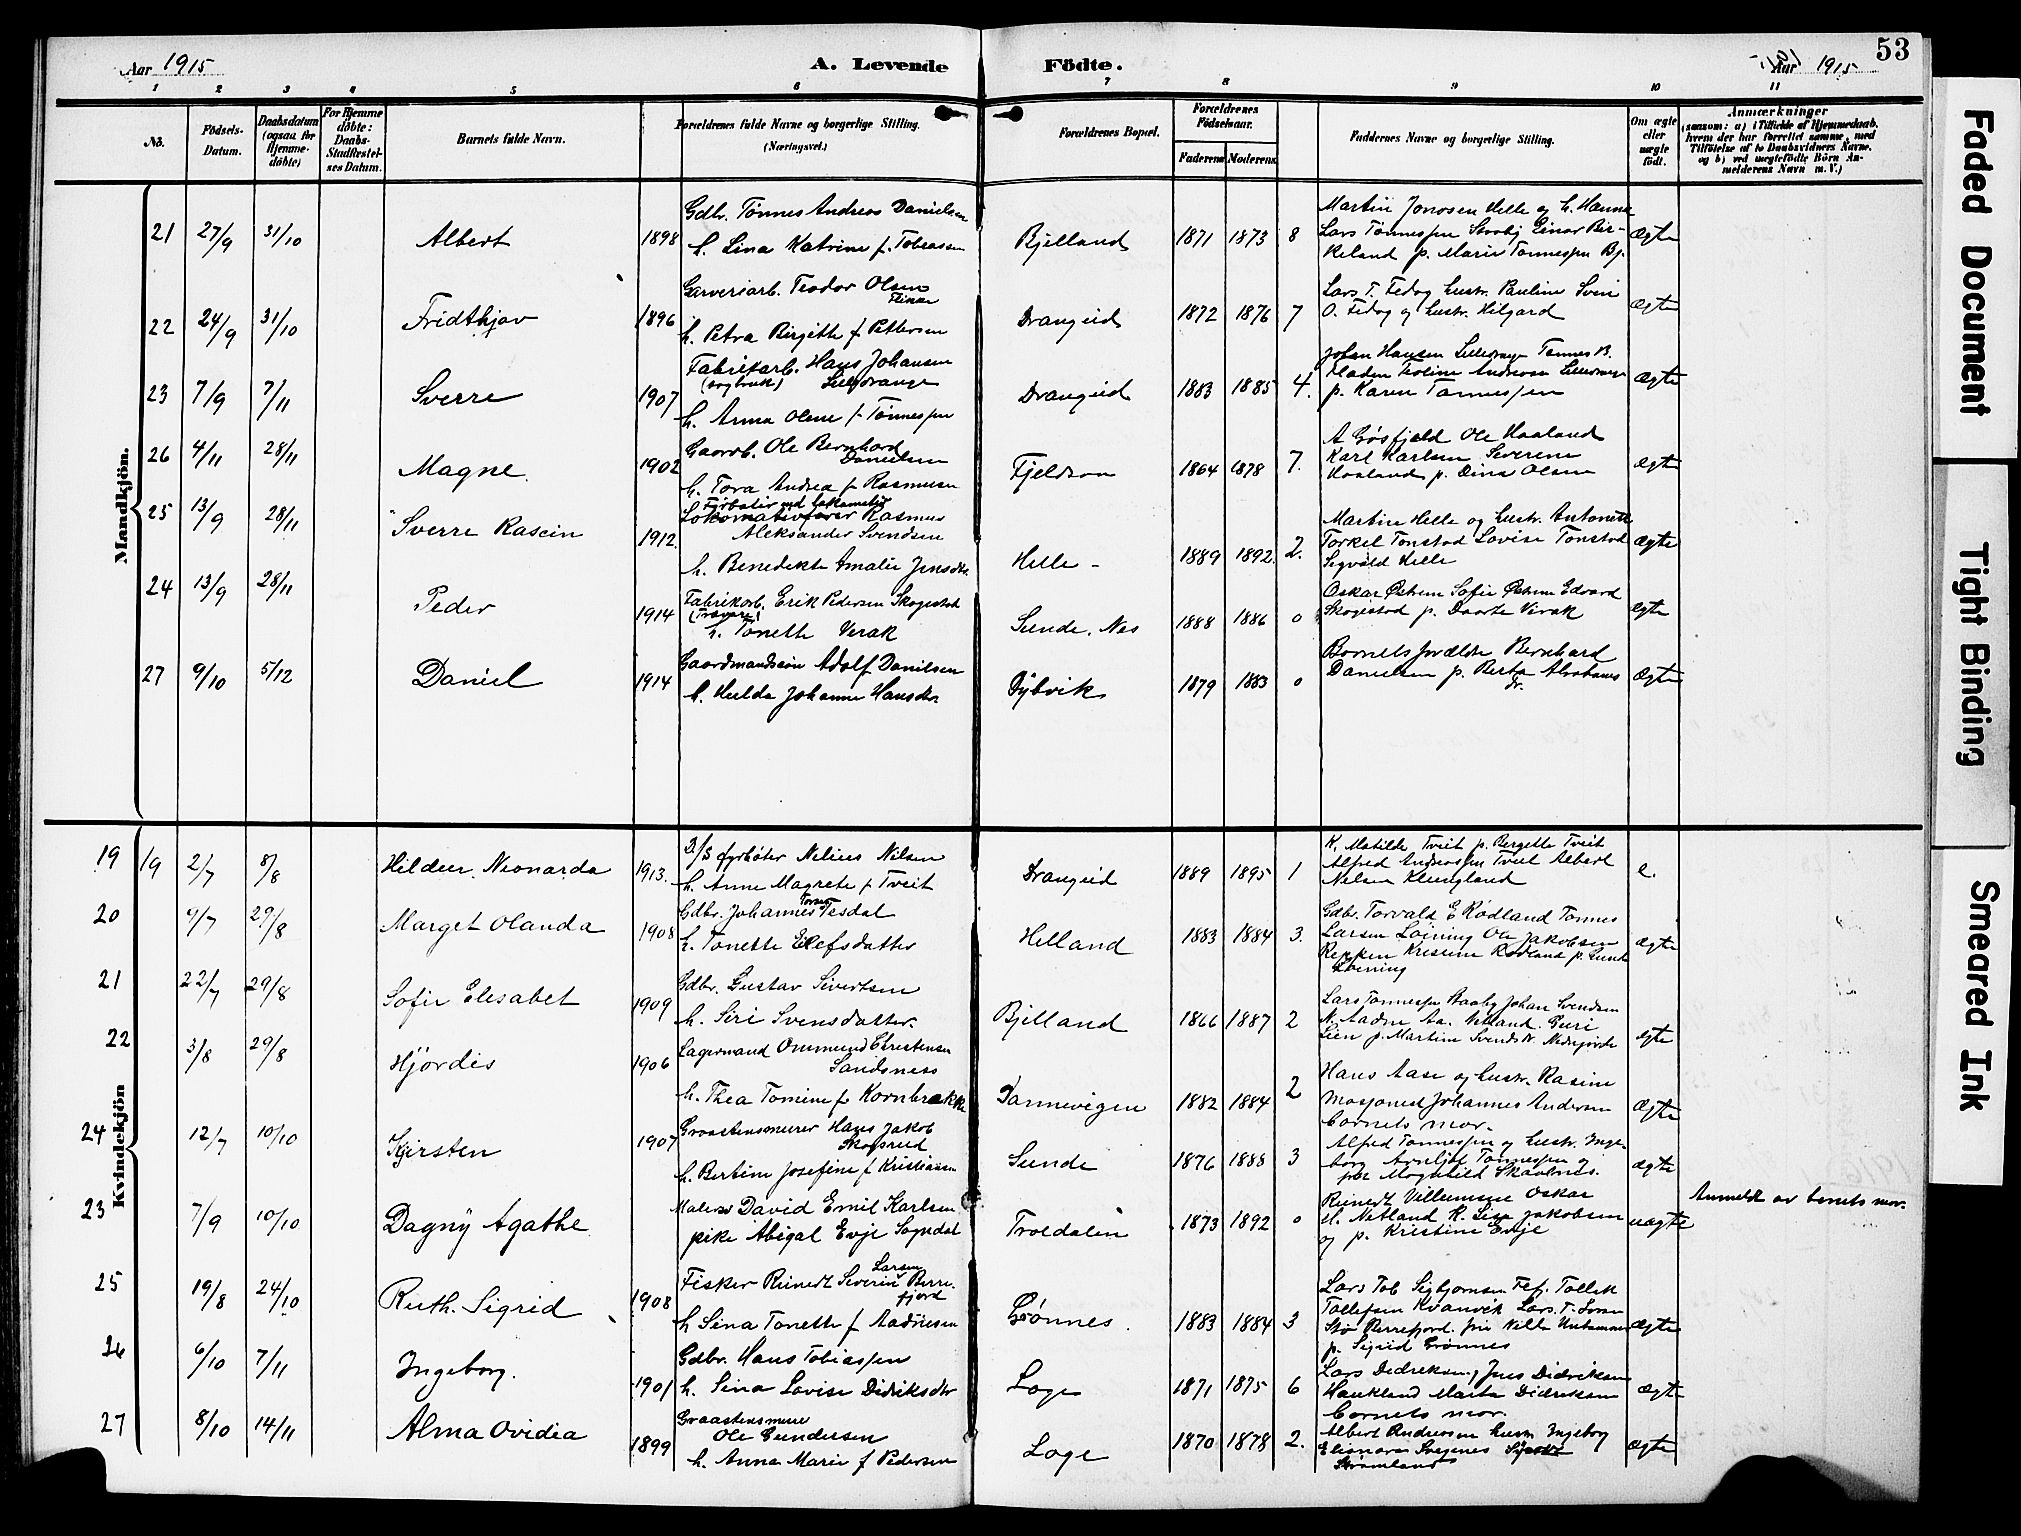 Aar 1915
A. Levende
Födte.
Aar 1915
53
1 2 3 4 5 6 7 8 9 10 11
No.
Födsels-
Datum.
Daabsdatum
(ogsaa för
Hjemme-
döbte)
For Hjemme
döbte:
Daabs-
Stadfæstel-
ses Datum.
Barnets fulde Navn.
Forældrenes fulde Navne og borgerlige Stilling.
(Næringsvei.)
Forældrenes Bopæl.
Forældrenes
Födselsaar.
Faderens Moderens
Faddernes Navne og borgerlige Stilling.
Om ægte
eller
uægte
födt.
Anmærkninger
(saasom: a) i Tilfælde af Hjemmedaab,
hvem der har forrettet samme, med
Tilföielse af to Daabsvidners Navne,
og b) ved uægtefödte Börn An-
melderens Navn m. V.)
Mandkjön.
21 27/9 31/10 Albert 1898
Gdbr. Tönnes Andreas Danielsen
h. Lina Katrine f. Tobiassen
Bjelland 1871 1873 8
Martin Jonosen Helle og h. Hanna
Lars Tönnessen Einar Bir-
keland p. Marie Tønnessen Bj.
Ægte
22 24/9 31/10 Fridthjov 1896
Garveriarb. Teodor Olsen
Flikke
h. Petra Birgitte f Pettersen
Drangeid 1872 1876 7
Lars T. Fedog hustr. Pauline Sven
O. Fedog og hustr. Hilgard
Ægte
23 7/9 7/11 Sverre 1907
Fabrikarb. Hans Johansen
(sagbruk) Lilledrange
h. Anna Oline f Tönnessen
Drangeid 1883 1885 4.
Johan Hansen Lilledrange Tønnes B.
Andreas Lilledrange
p. Karen Tønnessen
Ægte
26 4/11 28/11 Magne. 1902
Gaardb. Ole Bernhard
Danielsen
h. Tora Andrea f Rasmussen
Fjeldsaa 1864 1878 7.
A Gösfjeld Ole Haaland
Karl Karlsen Severine
Haaland p. Dina Olsen
Ægte
25 13/9 28/11 Sverre Rasein 1912.
Fyrbøter ved lokomotiv
Lokomotivfører Rasmus
Aleksander Svendsen
h. Benedikte Amalie Jensdtr.
Helle - 1889 1892. 2.
Martin Helle og hustr. Antonette
Torkel Tonstad Lovise Tonstad
Sigvald Helle
Ægte
24 13/9 28/11 Peder 1914
Fabrikarb. Erik Pedersen Skogestad
h. Tonette Verak
Sunde. Nes 1888 1886 0
Oskar Østrem Sofie Østrem Edvard
Skogestad p. Daarte Virak
egte
27 9/10 5/12 Daniel 1914
Gaardmandssøn Adolf Danielsen
h. Hulda Johanne Hansdtr.
Dybvik 1879 1883 0
Barnets forældre Bernhard
Danielsen p. Berta Abrahams
dr.
Ægte
Kvindekjön
19 19 2/7 8/8 Hildur Neonarda 1913.
D/S fyrbøter Nelius Nilsen
h. Anne Magrete f Tveit
Drangeid 1889 1895 1
K. Matilde Tveit p. Bergette Tveit
Alfred Andreassen Tveit Albert
Nelsen Klungland
e.
20 9/7 29/8 Marget Olanda 1908
Gdbr. Johannes Tesdal
h. Tonette Elefsdatter
Helland 1883 1884 3.
Gdbr. Torvald E Rödland Tönnes
Larsen Löining Ole Jakobsen
Reppen Kristine Rødland p. Gunda
Löining
Ægte
21 22/7 29/8 Sofie Elisabet 1909
Gdbr. Gustav Sivertsen
h. Siri Svensdatter.
Bjelland 1866 1887 2
Lars Tønnessen Johan Svendsen
N. Aadne Aa. Helland. Guri
Lien p. Martine Svendsdtr.
egte
22 3/8 29/8 Hjördis 1906
Lagermand Ommund Christensen
Sandsness
h. Thea Tomine f Kornbrekke
Dannevigen 1882 1884 2
Hans Aase og hustr. Rasine
Johannes Andersen
barnets mor.
Ægte
24 12/7 10/10 Kjersten 1907
Graastensmurer Hans Jakob
Skogsrud
h. Bertine Josefine f Kristiansen
Sunde 1876 1888 3
Alfred Tønnessen og hustr. Inge-
borg Arnljot Tønnessen og
pike Magnhild Skavlnes.
Ægte
23 7/9 10/10 Dagny Agathe
Maler David Emil Karlsen
pike Abigal Evje Sogndal
Troldalen 1873 1892 0
Reinedt Villumsen Oskar
M. Netland R. Lisa Jakobsen
og p. Kristine Evje
uægte
Anmeldt av barnets mor.
25 19/8 24/10 Ruth. Sigrid 1908
Larsen
Fisker Reinedt Severin Berre-
fjord
h Sina Tonette f Aadnesen
Grønnes. 1883 1884 3
Lars Tob Sigbjørnsen Fef. Tollek
Tollefsen Kvanvik Lars. T.
Berrefjord.
p. Sigrid Grønnes
Ægte
26 6/10 7/11 Ingeborg. 1901
Gdbr. Hans Tobiassen
h. Sina Lovise Didriksdtr
Loge 1871 1875 6
Lars Didriksen, Jens Didriksen
Haukland Marta Didriksen
barnets mor.
Ægte
27 8/10 14/11 Alma Ovidia 1899
Graastensmurer
Ole Gundersen
h. Anna Marie f Pedersen
Loge 1870 1878 2.
Albert Andreassen hustr Ingeborg
Svegenes
Strømland
Ægte
Faded Document
Tight Binding
Smeared Ink